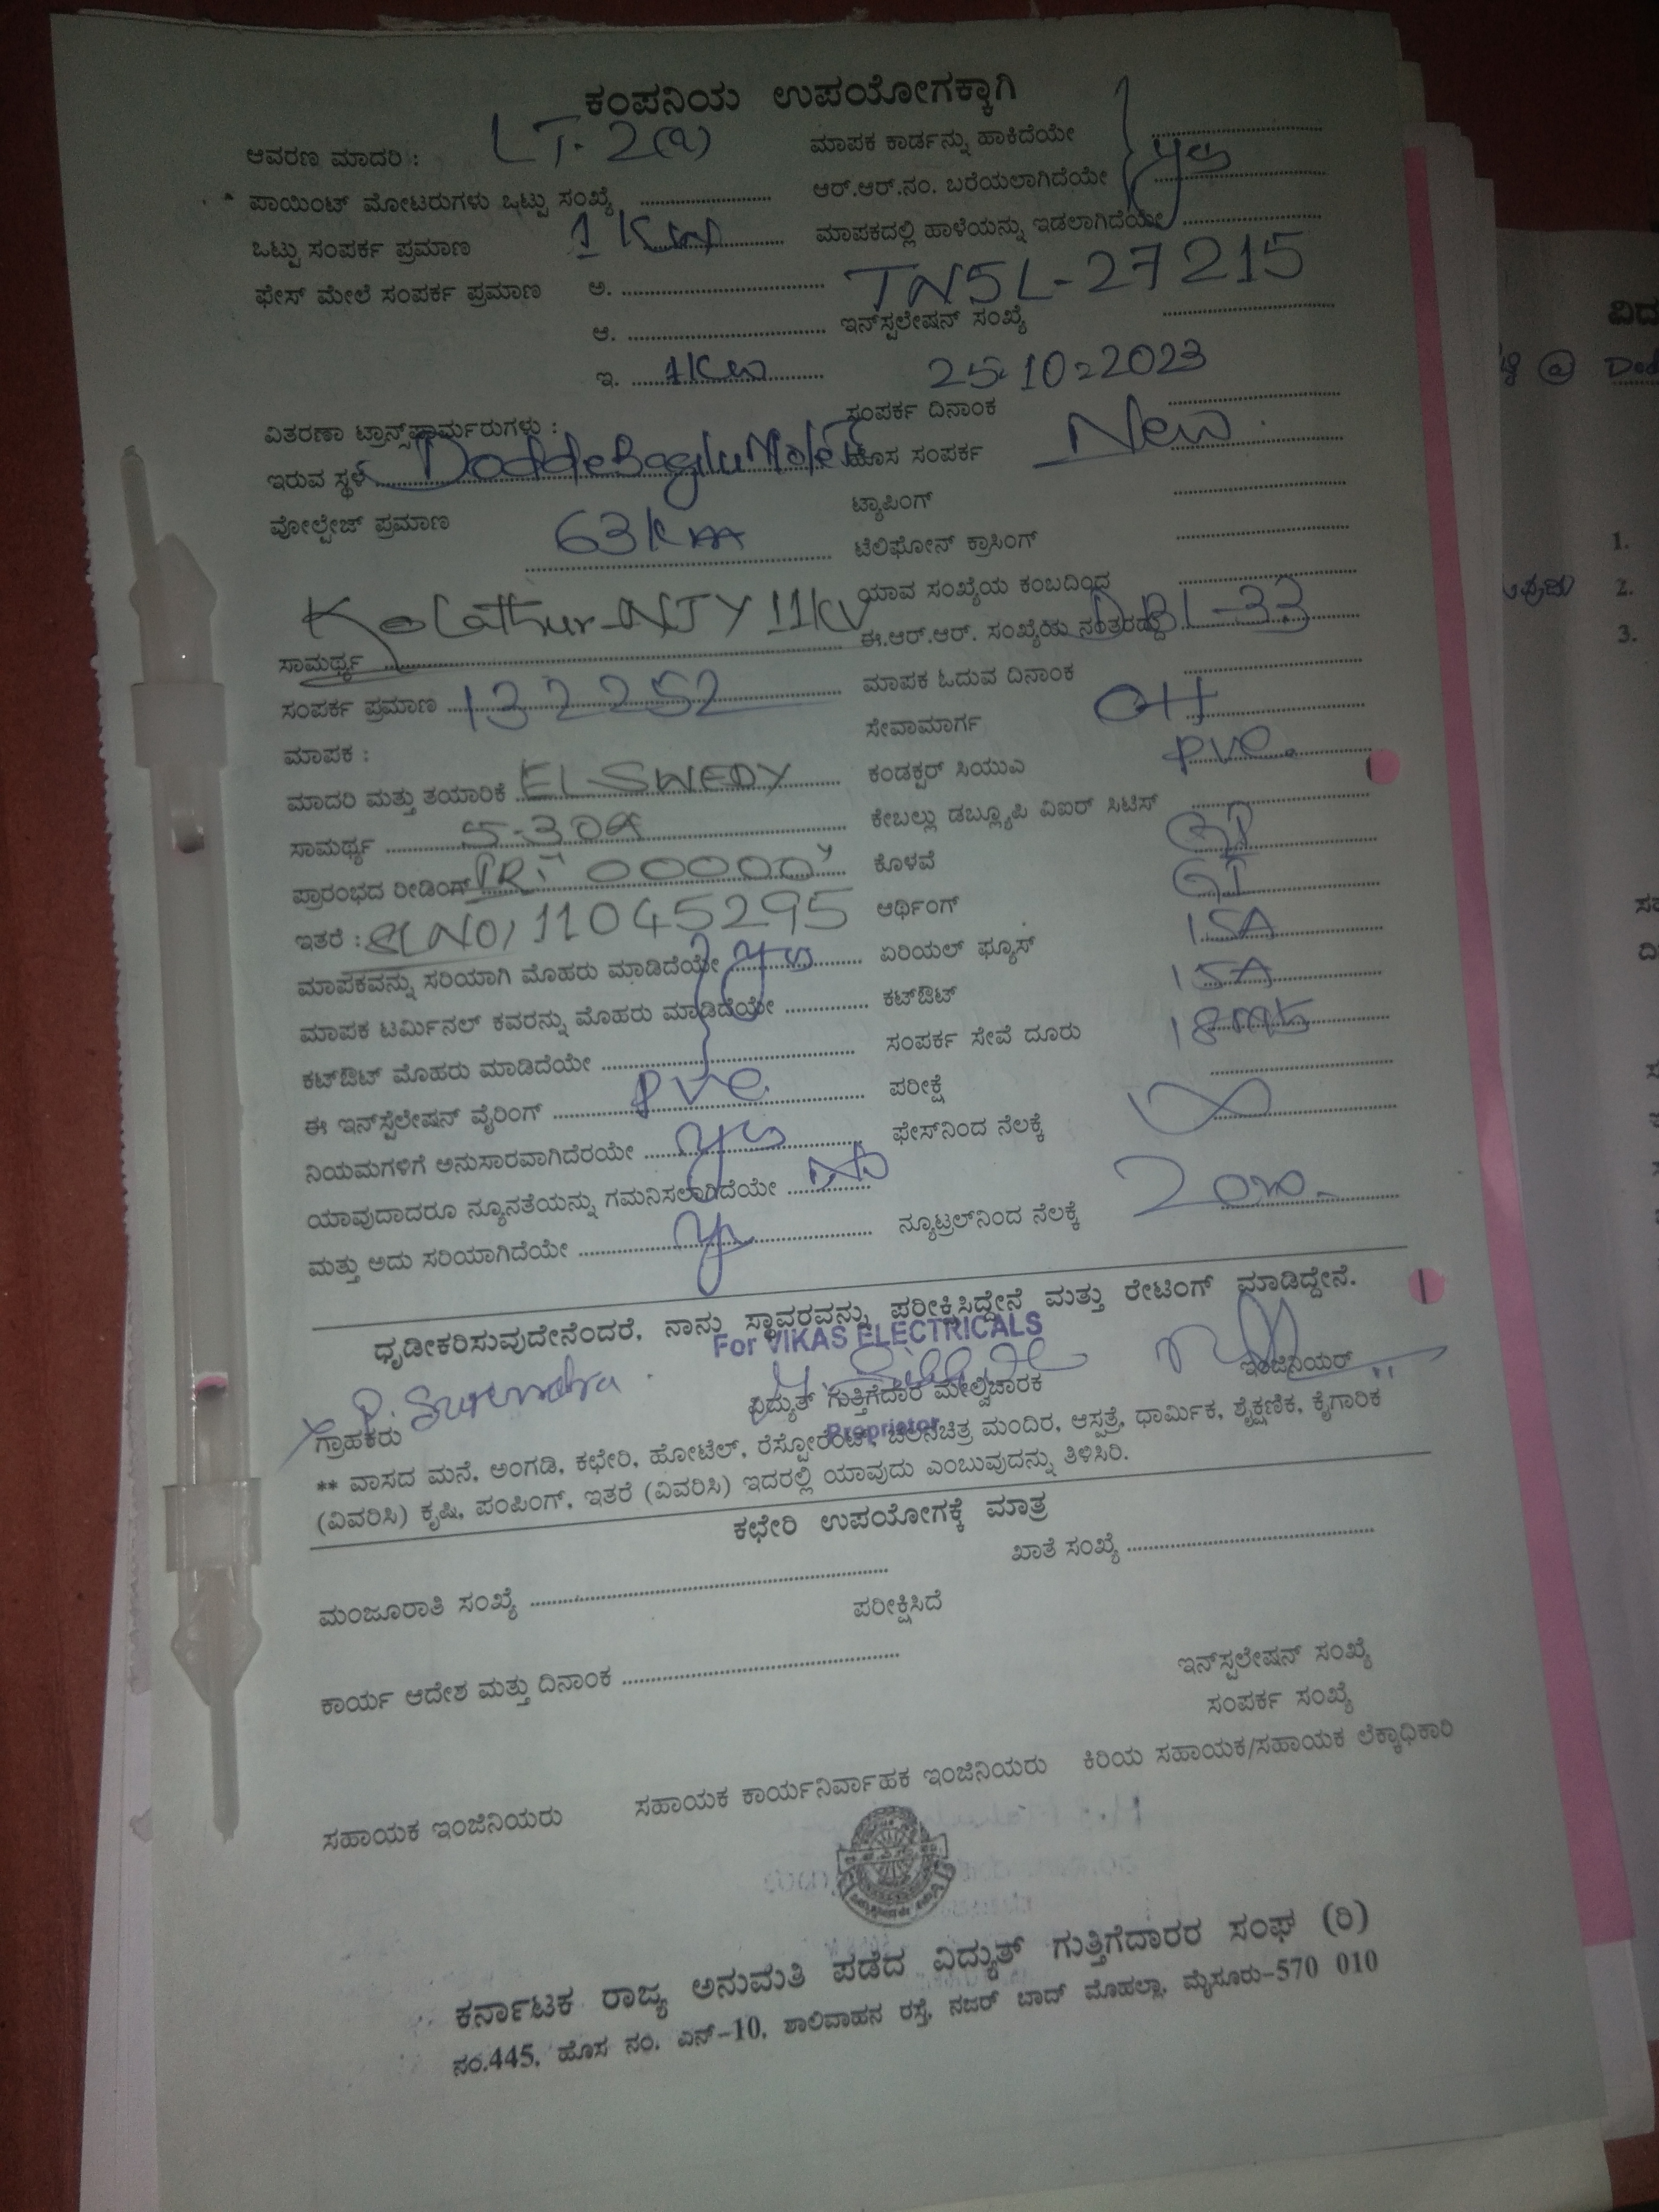 ಕಂಪನಿಯ ಉಪಯೋಗಕ್ಕಾಗಿ
ಆವರಣ ಮಾದರಿ : LT-2(a)
ಪಾಯಿಂಟ್ ಮೋಟರುಗಳು ಒಟ್ಟು ಸಂಖ್ಯೆ
ಒಟ್ಟು ಸಂಪರ್ಕ ಪ್ರಮಾಣ 1 Kw
ಫೇಸ್ ಮೇಲೆ ಸಂಪರ್ಕ ಪ್ರಮಾಣ ಅ.
ಆ.
ಇ. 1Kw
ವಿತರಣಾ ಟ್ರಾನ್ಸ್‌ಫಾರ್ಮರುಗಳು :
ಇರುವ ಸ್ಥಳ DoddeBagiluMole
ವೋಲ್ಟೇಜ್ ಪ್ರಮಾಣ 63
Kolathur-NJY 11KV
ಸಾಮರ್ಥ್ಯ
ಸಂಪರ್ಕ ಪ್ರಮಾಣ 132252
ಮಾಪಕ :
ಮಾದರಿ ಮತ್ತು ತಯಾರಿಕೆ EL SWEDY
ಸಾಮರ್ಥ್ಯ 5-30A
ಪ್ರಾರಂಭದ ರೀಡಿಂಗ್ 00000
ಇತರೆ : SL NO/ 11045295
ಮಾಪಕವನ್ನು ಸರಿಯಾಗಿ ಮೊಹರು ಮಾಡಿದೆಯೇ yes
ಮಾಪಕ ಟರ್ಮಿನಲ್ ಕವರನ್ನು ಮೊಹರು ಮಾಡಿದೆಯೇ
ಕಟ್‌ಔಟ್ ಮೊಹರು ಮಾಡಿದೆಯೇ
ಈ ಇನ್‌ಸ್ಪೆಲೇಷನ್ ವೈರಿಂಗ್ pvc
ನಿಯಮಗಳಿಗೆ ಅನುಸಾರವಾಗಿದೆರಯೇ yes
ಯಾವುದಾದರೂ ನ್ಯೂನತೆಯನ್ನು ಗಮನಿಸಲಾಗಿದೆಯೇ No
ಮತ್ತು ಅದು ಸರಿಯಾಗಿದೆಯೇ
ಮಾಪಕ ಕಾರ್ಡನ್ನು ಹಾಕಿದೆಯೇ
ಆರ್.ಆರ್.ನಂ. ಬರೆಯಲಾಗಿದೆಯೇ yes
ಮಾಪಕದಲ್ಲಿ ಹಾಳೆಯನ್ನು ಇಡಲಾಗಿದೆಯೇ
TNSL-27215
ಇನ್‌ಸ್ಪಲೇಷನ್ ಸಂಖ್ಯೆ
25-10-2023
ಸಂಪರ್ಕ ದಿನಾಂಕ
ಹೊಸ ಸಂಪರ್ಕ New
ಟ್ಯಾಪಿಂಗ್
ಟೆಲಿಫೋನ್ ಕ್ರಾಸಿಂಗ್
ಯಾವ ಸಂಖ್ಯೆಯ ಕಂಬದಿಂದ
ಈ.ಆರ್.ಆರ್. ಸಂಖ್ಯೆಯ ನಂತರದ್ದು DBL-33
ಮಾಪಕ ಓದುವ ದಿನಾಂಕ
ಸೇವಾಮಾರ್ಗ OH
ಕಂಡಕ್ಟರ್ ಸಿಯುಎ pvc.
ಕೇಬಲ್ಲು ಡಬ್ಲ್ಯೂಪಿ ವಿಐರ್ ಸಿಟಿಸ್
ಕೊಳವೆ GI
ಆರ್ಥಿಂಗ್ GI
ಏರಿಯಲ್ ಫ್ಯೂಸ್ 15A
ಕಟ್‌ಔಟ್ 15A
ಸಂಪರ್ಕ ಸೇವೆ ದೂರು 18mts
ಪರೀಕ್ಷೆ
ಫೇಸ್‌ನಿಂದ ನೆಲಕ್ಕೆ ∞
ನ್ಯೂಟ್ರಲ್‌ನಿಂದ ನೆಲಕ್ಕೆ
ಧೃಡೀಕರಿಸುವುದೇನೆಂದರೆ, ನಾನು ಸ್ಥಾವರವನ್ನು ಪರೀಕ್ಷಿಸಿದ್ದೇನೆ ಮತ್ತು ರೇಟಿಂಗ್ ಮಾಡಿದ್ದೇನೆ.
For VIKAS ELECTRICALS
P. Surendra
ಗ್ರಾಹಕರು ವಿದ್ಯುತ್ ಗುತ್ತಿಗೆದಾರ ಮೇಲ್ವಿಚಾರಕ ಇಂಜಿನಿಯರ್
Proprietor
** ವಾಸದ ಮನೆ, ಅಂಗಡಿ, ಕಛೇರಿ, ಹೋಟೆಲ್, ರೆಸ್ಟೋರೆಂಟ್, ಚಲನಚಿತ್ರ ಮಂದಿರ, ಆಸ್ಪತ್ರೆ, ಧಾರ್ಮಿಕ, ಶೈಕ್ಷಣಿಕ, ಕೈಗಾರಿಕ
(ವಿವರಿಸಿ) ಕೃಷಿ, ಪಂಪಿಂಗ್, ಇತರೆ (ವಿವರಿಸಿ) ಇದರಲ್ಲಿ ಯಾವುದು ಎಂಬುವುದನ್ನು ತಿಳಿಸಿರಿ.
ಕಛೇರಿ ಉಪಯೋಗಕ್ಕೆ ಮಾತ್ರ
ಮಂಜೂರಾತಿ ಸಂಖ್ಯೆ ಖಾತೆ ಸಂಖ್ಯೆ
ಪರೀಕ್ಷಿಸಿದೆ
ಕಾರ್ಯ ಆದೇಶ ಮತ್ತು ದಿನಾಂಕ
ಇನ್‌ಸ್ಪಲೇಷನ್ ಸಂಖ್ಯೆ
ಸಂಪರ್ಕ ಸಂಖ್ಯೆ
ಸಹಾಯಕ ಇಂಜಿನಿಯರು ಸಹಾಯಕ ಕಾರ್ಯನಿರ್ವಾಹಕ ಇಂಜಿನಿಯರು ಕಿರಿಯ ಸಹಾಯಕ/ಸಹಾಯಕ ಲೆಕ್ಕಾಧಿಕಾರಿ
ಕರ್ನಾಟಕ ರಾಜ್ಯ ಅನುಮತಿ ಪಡೆದ ವಿದ್ಯುತ್ ಗುತ್ತಿಗೆದಾರರ ಸಂಘ (ರಿ)
ನಂ.445, ಹೊಸ ನಂ. ಎನ್-10, ಶಾಲಿವಾಹನ ರಸ್ತೆ, ನಜರ್ ಬಾದ್ ಮೊಹಲ್ಲಾ, ಮೈಸೂರು-570 010
1.
2.
3.